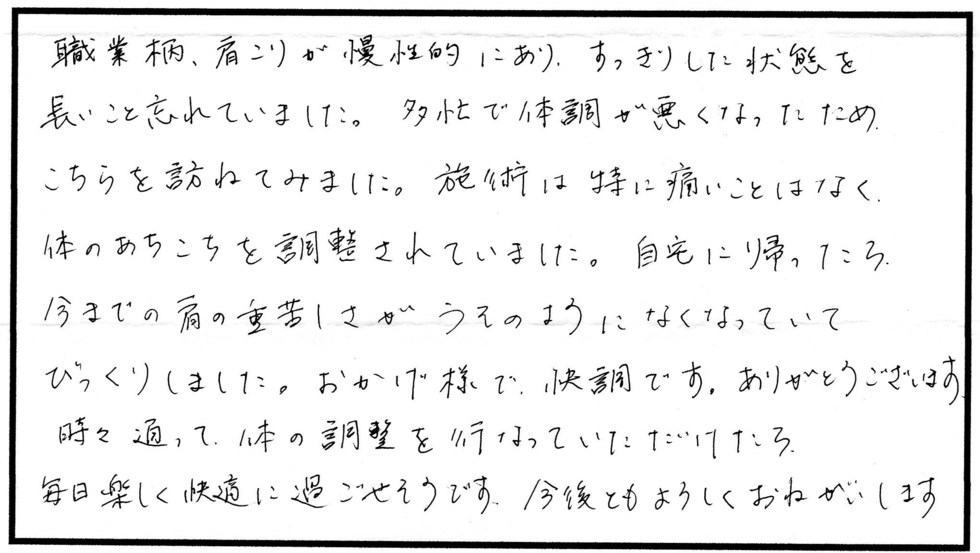 職業柄、肩こりが慢性的にあり、すっきりした状態を
長いこと忘れていました。多忙で体調が悪くなったため、
こちらを訪ねてみました。施術は特に痛いことはなく、
体のあちこちを調整されていました。自宅に帰ったら、
今までの肩の重苦しさがうそのようになくなっていて
びっくりしました。おかげ様で、快調です。ありがとうございます。
時々通って、体の調整を行なっていただけたら、
毎日楽しく快適に過ごせそうです。今後ともよろしくおねがいします